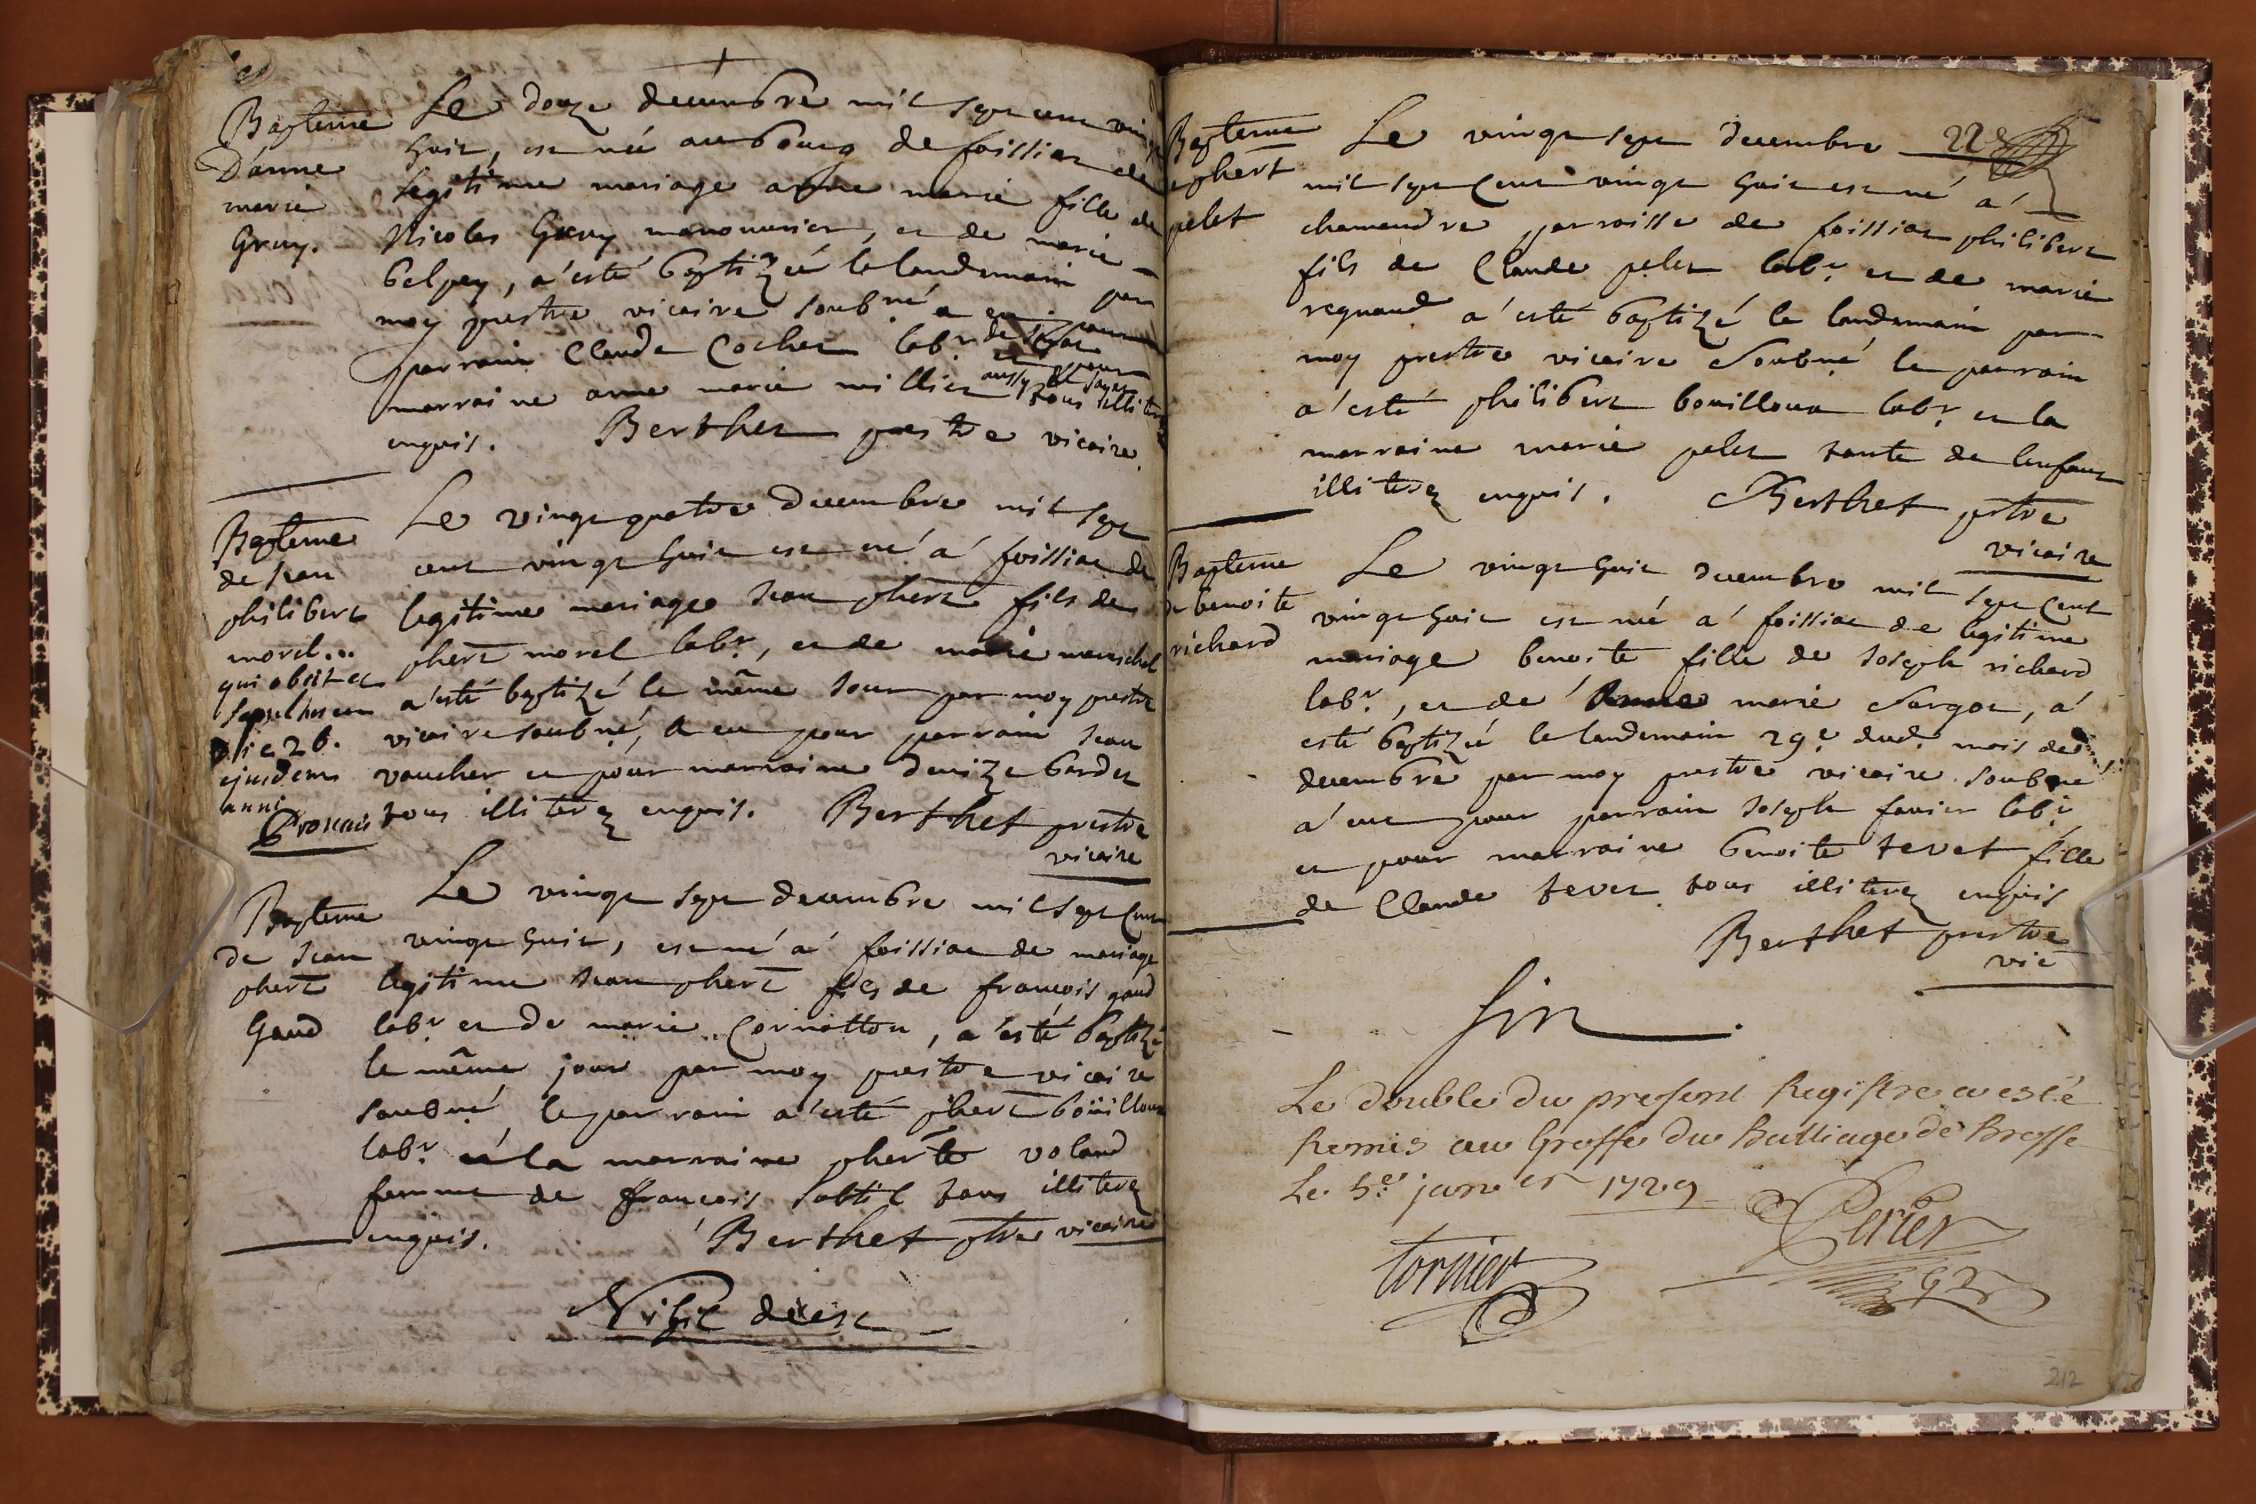 Bapteme
D'anne
marie
Gruy.
Le douze decembre mil sept cent vingt
huit, est né au bourg de foissiat de
legitime mariage anne marie fille de
Nicolas Gruy manouvrier, et de marie
belpey, a'esté baptizéé le landemain par
moy prestre vicaire soubné a eu pour
parrain Claude Cochet labr et pour
marraine anne marie millier aussy tous illiterez
enquis. Berthet prestre vicaire.
Bapteme
de Jean
philibert
morel...
qui obiit et
sepultus
die 26.
ejusdem
anni
Le vingt quatre decembre mil sept
cent vingt huit est né a' foissiat de
legitime mariage Jean phert fils de
phert morel labr, et de marie mareschal
a'esté baptizé le même Jour par moy prestre
vicaire soubné, a eu pour parrain Jean
voucher et pour marraine denize bardet
tous illiterez enquis. Berthet prestre
vicaire
Bapteme
de Jean
phert
Gaud
Le vingt sept decembre mil sept Cent
vingt huit, est né a' foissiat de mariage
legitime Jean phert fils de françois gaud
labr et de marie Cornatton, a'esté baptizé
le même jour par moy prestre vicaire
soubné, le parrain a'esté phert boüilloux
labr et la marraine pherte voland
femme de françois sabtil tous illiterez
enquis. Berthet ptre vicaire
Nihil deest
Bapteme
phert
pelet
22
Le vingt sept decembre
mil sept Cent vingt huit est né a'
chamandre parroisse de foissiat philibert
fils de Claude pelet labr et de marie
regnaud a'esté baptizé le landemain par
moy prestre vicaire soubné le parrain
a'esté philibert bouilloux labr et la
marraine marie pelet tante de lenfant
illiterez enquis. Berthet ptre
vicaire
Bapteme
de benoite
richard
Le vingt huit decembre mil sept Cent
vingt huit est néé a' foissiat de legitime
mariage benoite fille de Joseph richard
labr, et de Anne marie Sargot, a'
esté baptizéé le landemain 29e dud. mois de
decembre par moy prestre vicaire soubné
a'eut pour parrain Joseph favier labr
et pour marraine benoite tevet fille
de Claude tevet tous illiterez enquis
Berthet prestre
vic
fin
Le double du present Registre a esté
Remis au Greffe du Bailliage de Bresse
Le 5e janvier 1729
Perier
tornier
212